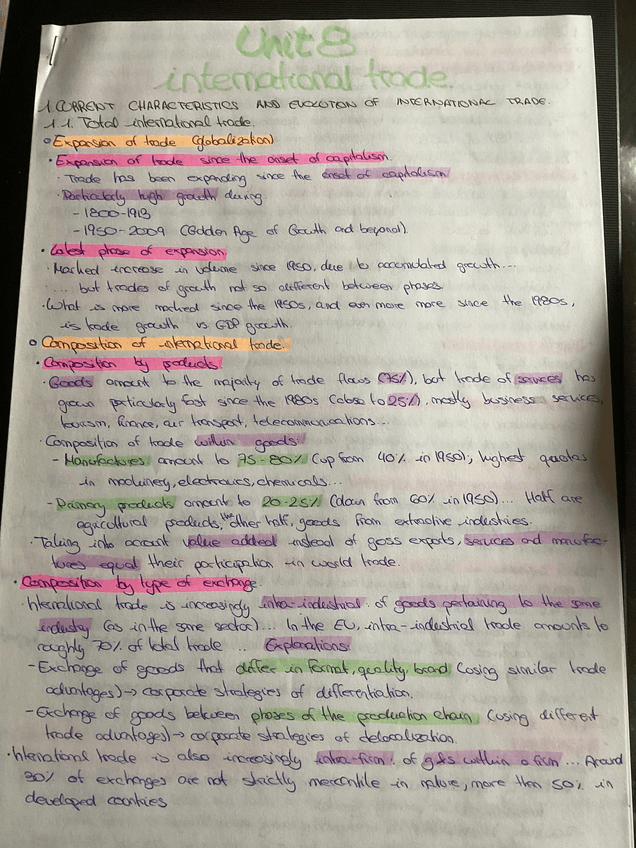 Unit 8
international trade.
1. CURRENT CHARACTERISTICS AND EVOLUTION OF INTERNATIONAL TRADE.
1.1. Total international trade.
Expansion of trade (globalization)
· Expansion of trade since the onset of capitalism.
· Trade has been expanding since the onset of capitalism
· Particularly high growth during
- 1800-1913
- 1950-2009 (Golden Age of Growth and beyond).
· Latest phase of expansion
· Marked increase in volume since 1950, due to accumulated growth...
... but trades of growth not so different between phases.
· What is more marked since the 1950s, and even more more since the 1980s,
is trade growth vs GDP growth.
Composition of international trade.
· Composition by products
· Goods amount to the majority of trade flows (75%), but trade of services has
grown particularly fast since the 1980s (close to 25%), mostly business services,
tourism, finance, air transport, telecommunications...
· Composition of trade within goods
- Manufactures amount to 75-80% (up from 40% in 1950); highest quotas
in machinery, electronics, chemicals...
- Primary products amount to 20-25% (down from 60% in 1950)... Half are
agricultural products, the other half, goods from extractive industries.
· Taking into account value added instead of gross exports, services and manufac-
tures equal their participation in world trade.
· Composition by type of exchange.
· International trade is increasingly intra-industrial: of goods pertaining to the same
industry (as in the same sector)... In the EU, intra-industrial trade amounts to
roughly 70% of total trade... Explanations
- Exchange of goods that differ in format, quality, brand (using similar trade
advantages) → corporate strategies of differentiation.
- Exchange of goods between phases of the production chain (using different
trade advantages) → corporate strategies of delocalization.
· International trade is also increasingly intra-firm: of g&s within a firm... Around
30% of exchanges are not strictly mercantile in nature, more than 50% in
developed countries